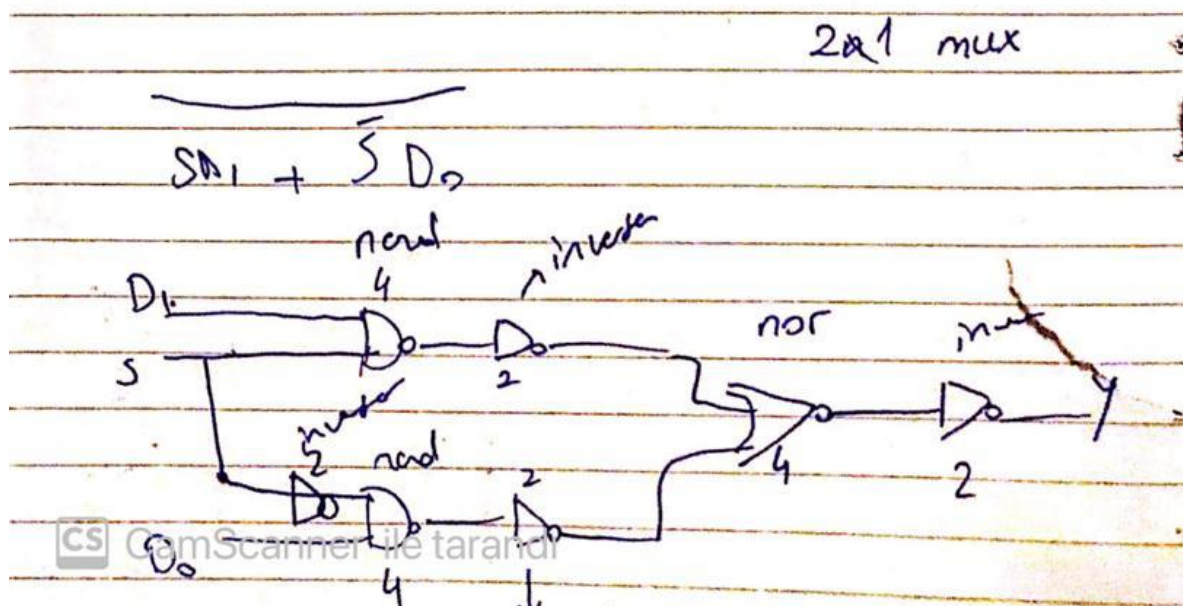 2x1 mux
SD1 + S̄ D0
nand
4
inverter
D1
nor
inv
S
2
inverter
Y
2
nand
2
4
2
CS CamScanner ile tarandı
D0
4